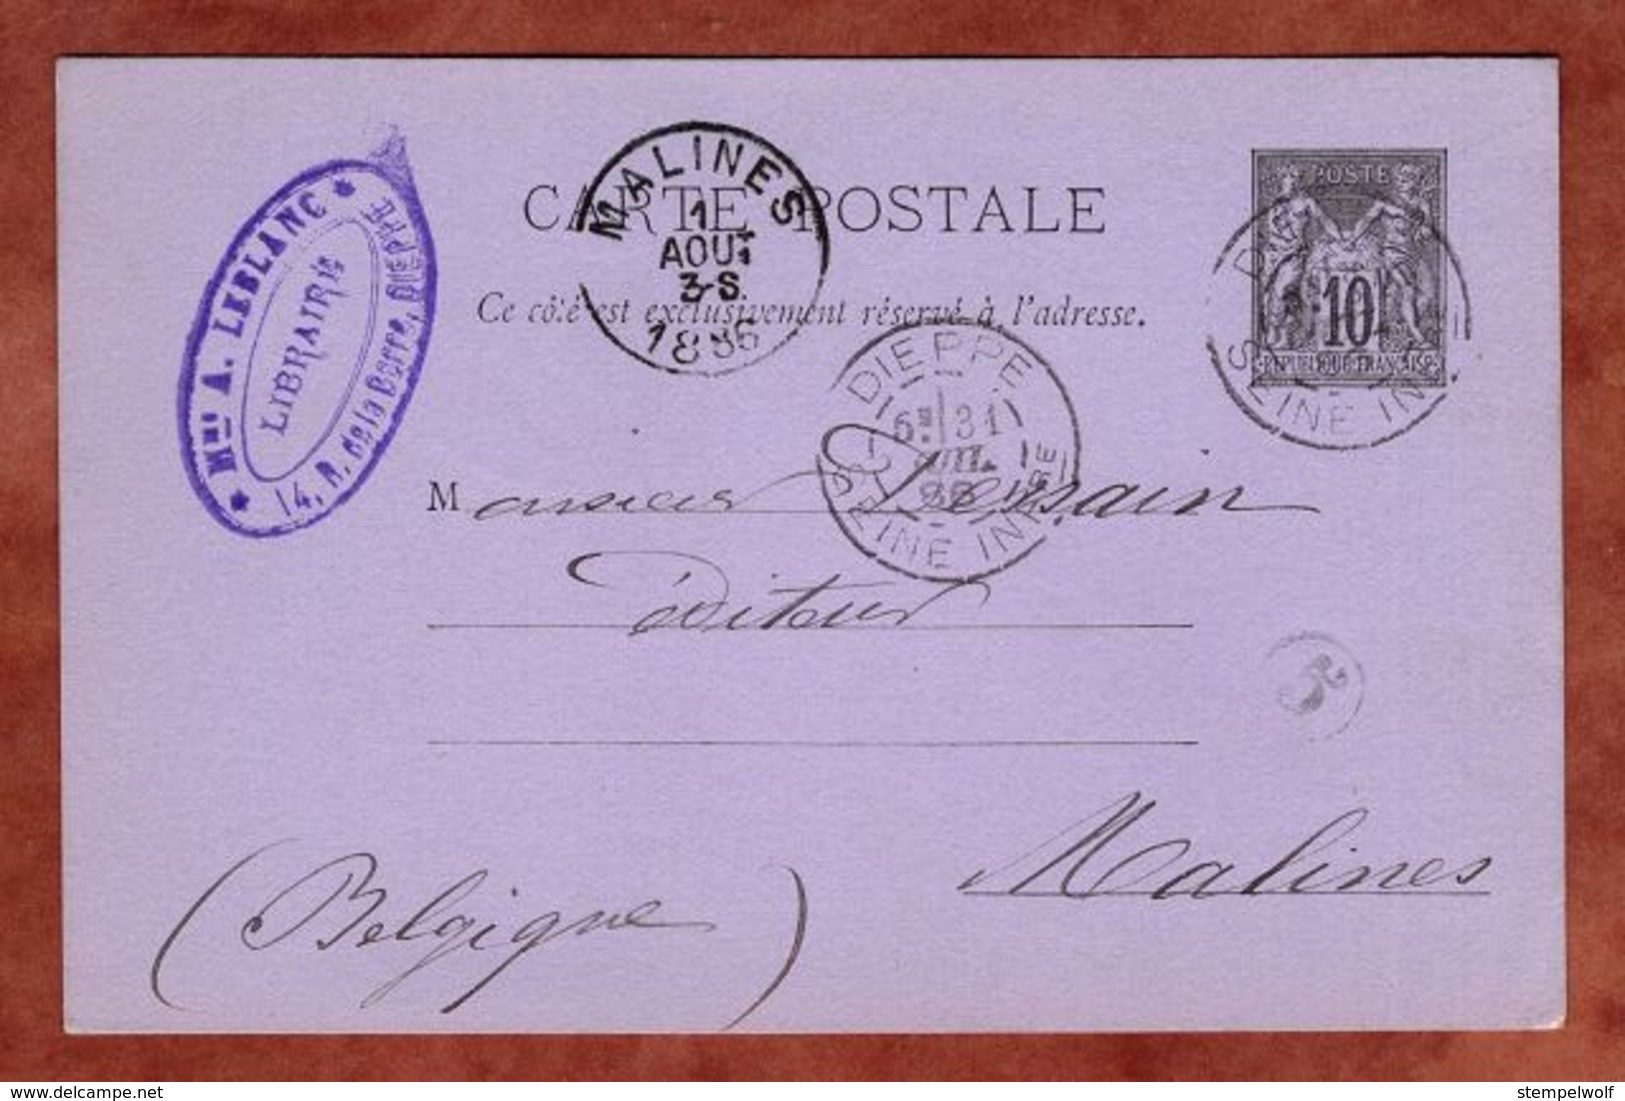 CARTE POSTALE
Ce côté est exclusivement réservé à l'adresse.
POSTE
10
REPUBLIQUE FRANÇAISE
MALINES
1
AOUT
3-S.
1886
A. LEBLANC
LIBRAIRIE
14, R. de la Barre, DIEPPE
DIEPPE
6E 31
JUIL
86
SEINE INFRE
SEINE INF
Monsieur Dessain
éditeur
5
Malines
(Belgique)
delcampe.net
stempelwolf